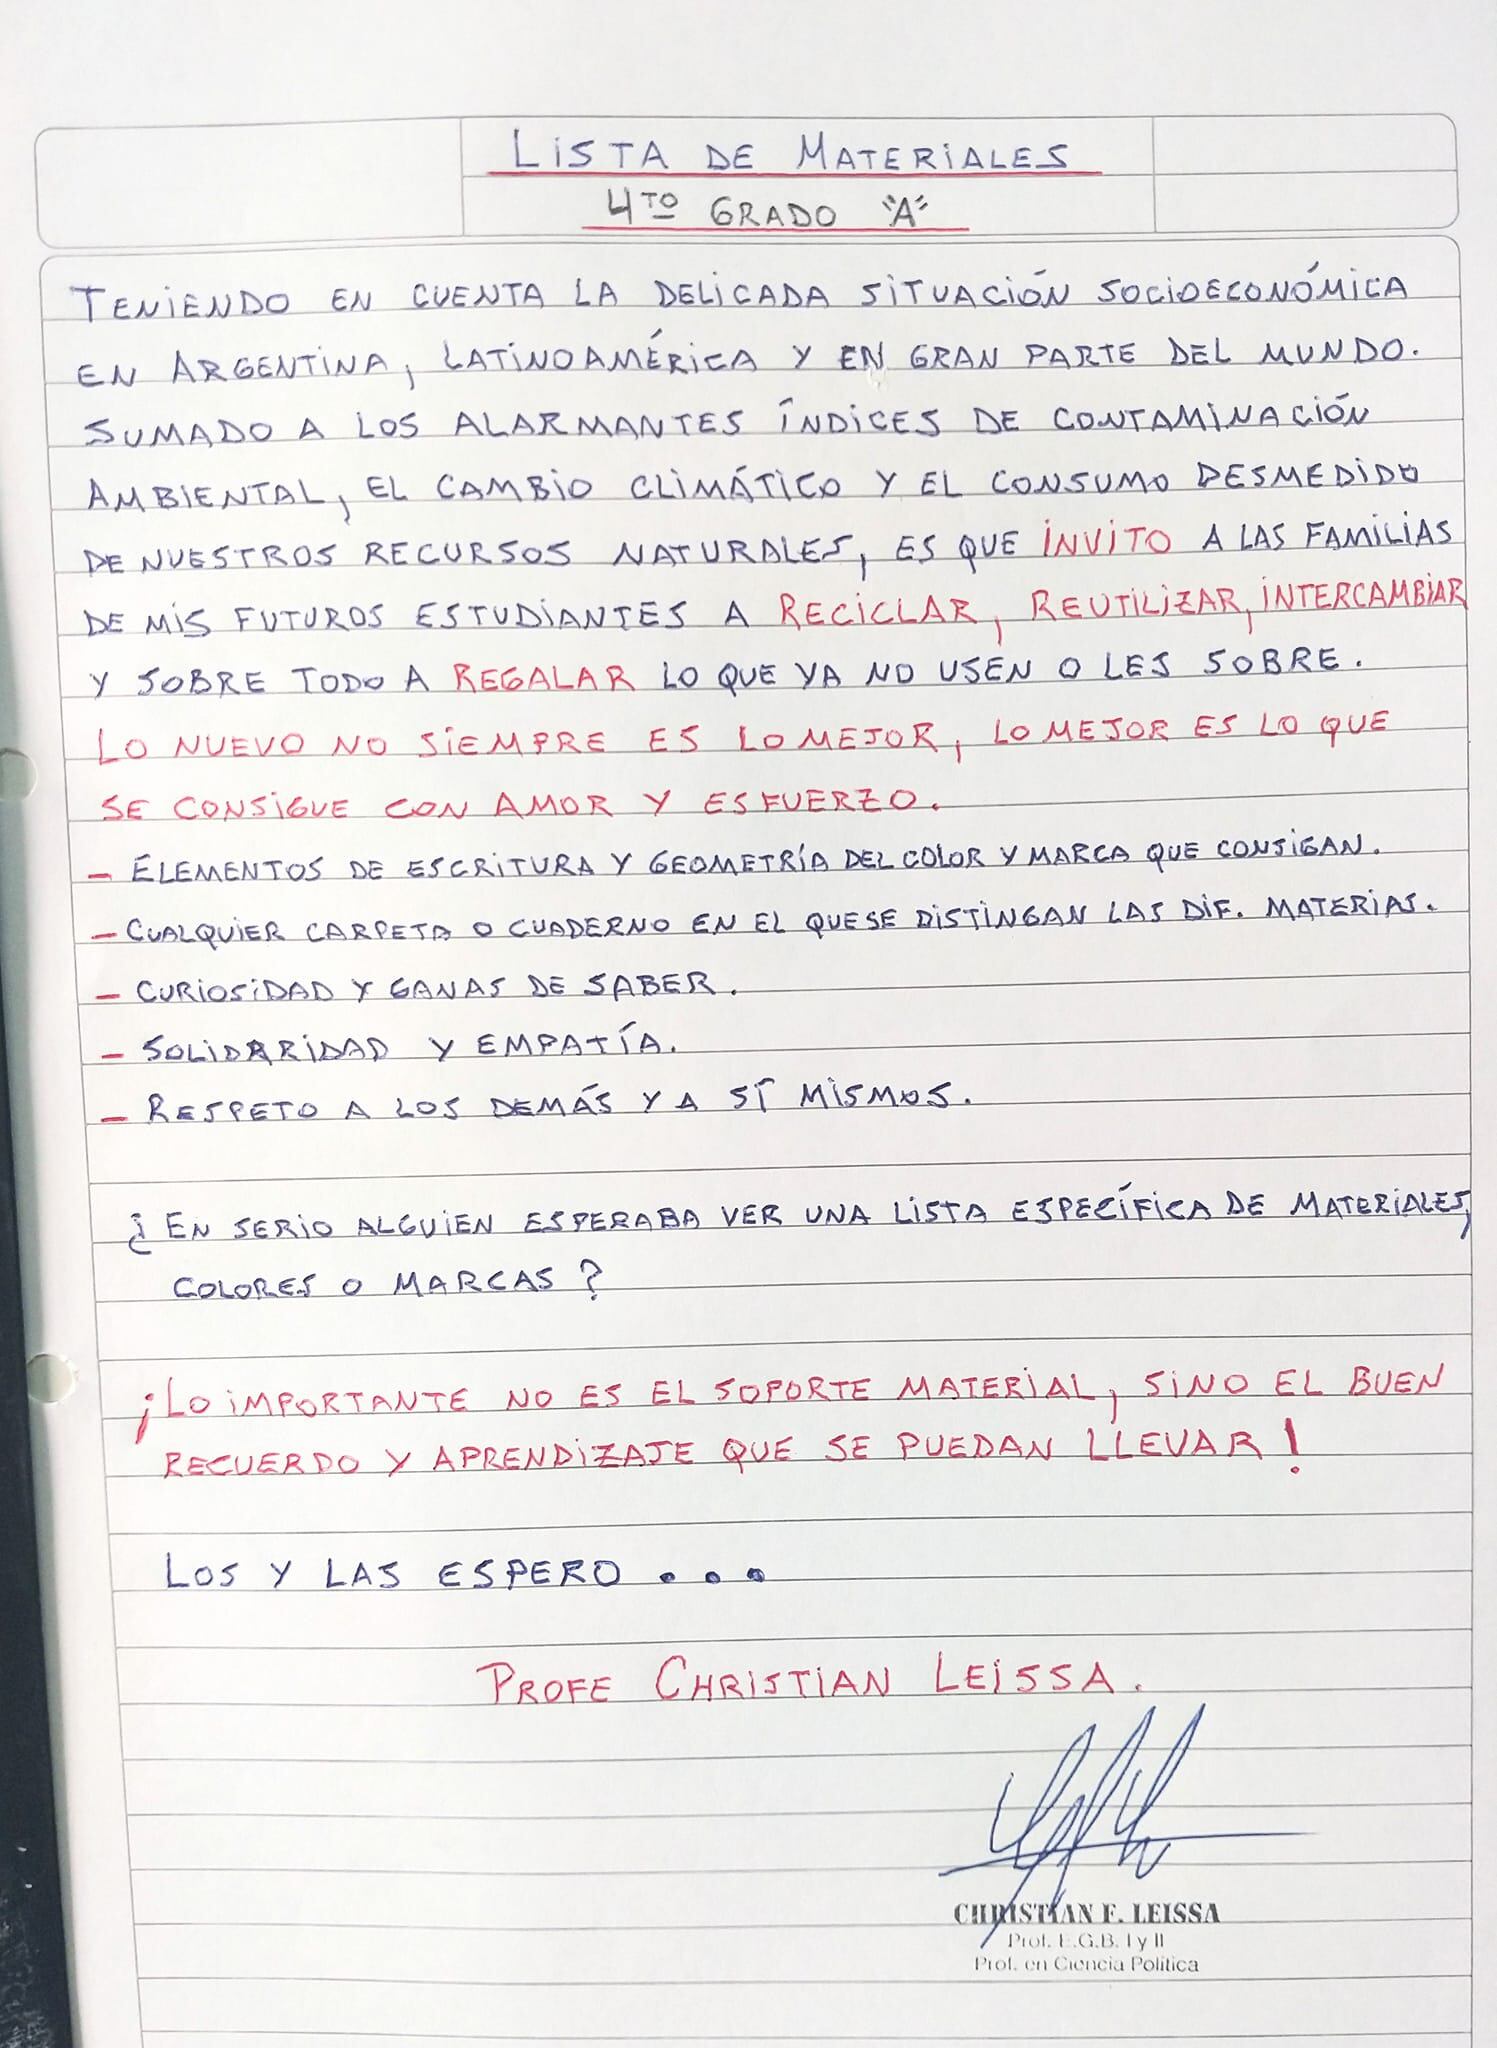 LISTA DE MATERIALES
4TO GRADO "A"
TENIENDO EN CUENTA LA DELICADA SITUACIÓN SOCIOECONÓMICA
EN ARGENTINA, LATINOAMÉRICA Y EN GRAN PARTE DEL MUNDO.
SUMADO A LOS ALARMANTES ÍNDICES DE CONTAMINACIÓN
AMBIENTAL, EL CAMBIO CLIMÁTICO Y EL CONSUMO DESMEDIDO
DE NUESTROS RECURSOS NATURALES, ES QUE INVITO A LAS FAMILIAS
DE MIS FUTUROS ESTUDIANTES A RECICLAR, REUTILIZAR, INTERCAMBIAR
Y SOBRE TODO A REGALAR LO QUE YA NO USEN O LES SOBRE.
LO NUEVO NO SIEMPRE ES LO MEJOR, LO MEJOR ES LO QUE
SE CONSIGUE CON AMOR Y ESFUERZO.
- ELEMENTOS DE ESCRITURA Y GEOMETRÍA DEL COLOR Y MARCA QUE CONSIGAN.
- CUALQUIER CARPETA O CUADERNO EN EL QUE SE DISTINGAN LAS DIF. MATERIAS.
- CURIOSIDAD Y GANAS DE SABER.
- SOLIDARIDAD Y EMPATÍA.
- RESPETO A LOS DEMÁS Y A SÍ MISMOS.
¿EN SERIO ALGUIEN ESPERABA VER UNA LISTA ESPECÍFICA DE MATERIALES,
COLORES O MARCAS?
¡LO IMPORTANTE NO ES EL SOPORTE MATERIAL, SINO EL BUEN
RECUERDO Y APRENDIZAJE QUE SE PUEDAN LLEVAR!
LOS Y LAS ESPERO...
PROFE CHRISTIAN LEISSA.
CHRISTIAN F. LEISSA
Prof. E.G.B. I y II
Prof. en Ciencia Política